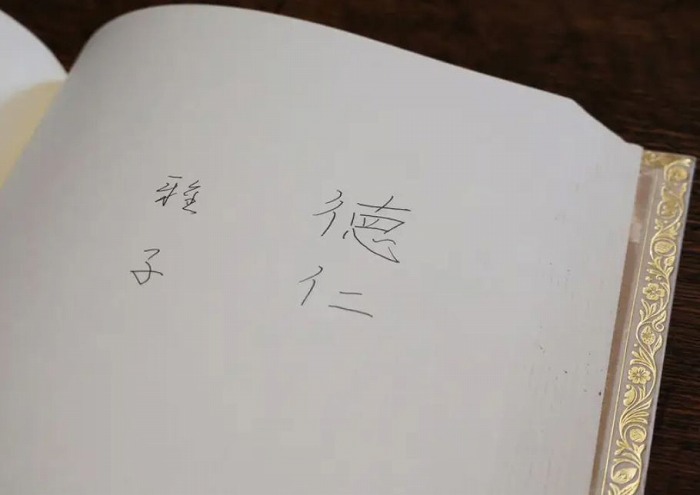 徳仁
雅子